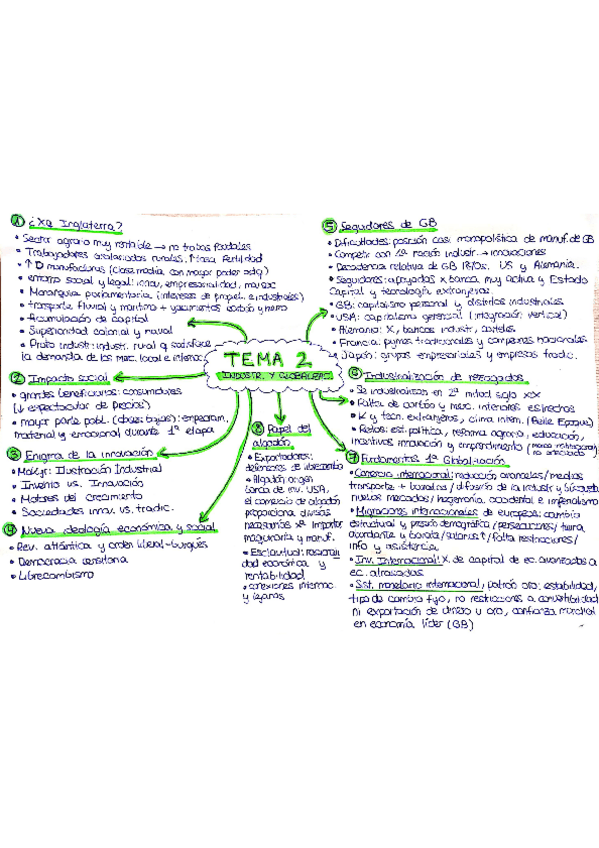 TEMA 2
INDUSTR. Y GLOBALIZAC.
1 ¿Xq Inglaterra?
• Sector agrario muy rentable → no trabas feudales
• Trabajadores asalariados rurales. ↑ tasa fertilidad
• ↑ D manufacturas (clase media con mayor poder adq)
• entorno social y legal: innov, empresarialidad,
• Monarquía parlamentaria (intereses de propiet. e industriales)
• transporte fluvial y marítimo + yacimientos carbón y hierro
• Acumulación de capital
• Superioridad colonial y naval
• Proto industr: industr. rural q satisface
la demanda de los merc. local e internac.
2 Impacto social
• grandes beneficiarios: consumidores
(↓ espectacular de precios)
• mayor parte pobl. (clases bajas): empeoram.
material y emocional durante 1ª etapa
3 Enigma de la innovación
• Mokyr: Ilustración Industrial
• Invento vs. Innovación
• Motores del crecimiento
• Sociedades innov. vs. tradic.
4 Nueva ideología económica y social
• Rev. atlántica y orden liberal-burgués
• Democracia censitaria
• Librecambismo
8 Papel del
algodón
• Exportadores:
defensores de librecambio
• Algodón origen
barco de inv. USA,
el comercio de algodón
proporciona divisas
necesarias xa importar
maquinaria y manuf.
• Esclavitud:
económica y
rentabilidad
• conexiones internac.
y legales
5 Seguidores de GB
• Dificultades: posición casi monopolística de manuf. de GB
• Competir con 1ª nación industr. → innovaciones
• Decadencia relativa de GB US y Alemania.
• Seguidores: apoyados x banca muy activa y Estado
Capital y tecnología extranjeras
• GB: capitalismo personal y distritos industriales
• USA: capitalismo gerencial (integración vertical)
• Alemania: X, bancos industr, cárteles
• Francia: pymes tradicionales y campeones nacionales
• Japón: grupos empresariales y empresas tradic.
6 Industrialización de rezagados
• Se industrializan en 2ª mitad siglo XX
• Falta de carbón y merc. interiores estrechos
• K y tecn. extranjeros, clima intern. (Belle Époque)
• Retos: est. política, reforma agraria, educación,
incentivos innovación y emprendimiento (marco institucional no adecuado)
7 Fundamentos 1ª Globalización
• Comercio internacional: reducción aranceles / medios
transporte + baratos / difusión de la industr y búsqueda
nuevos mercados / hegemonía occidental e imperialismo
• Migraciones internacionales de europeos: cambio
estructural y presión demográfica / persecuciones / tierra
abundante y barata / salarios ↑ / falta restricciones /
info y asistencia
• Inv. Internacional: X de capital de ec. avanzadas a
ec. atrasadas
• Sist. monetario internacional, patrón oro: estabilidad,
tipo de cambio fijo, no restricciones a convertibilidad
ni exportación de dinero u oro, confianza mundial
en economía líder (GB)